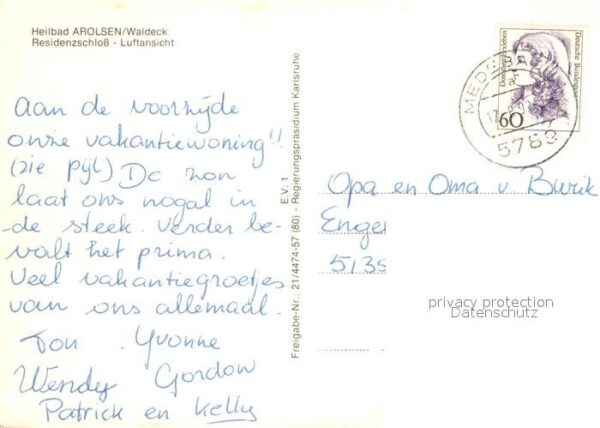 Heilbad AROLSEN/Waldeck
Residenzschloß - Luftansicht
Aan de voorzijde
onze vakantiewoning!!
(zie pijl) De zon
laat ons nogal in
de steek. Verder be-
valt het prima.
Veel vakantiegroetjes
van ons allemaal.
Ton Yvonne
Wendy Gordon
Patrick en Kelly
Freigabe-Nr.: 21/4474-57 (80) - Regierungspräsidium Karlsruhe
E.V. 1
Deutsche Bundespost
60
5789
Opa en Oma v. Burik
Enge
5135
privacy protection
Datenschutz